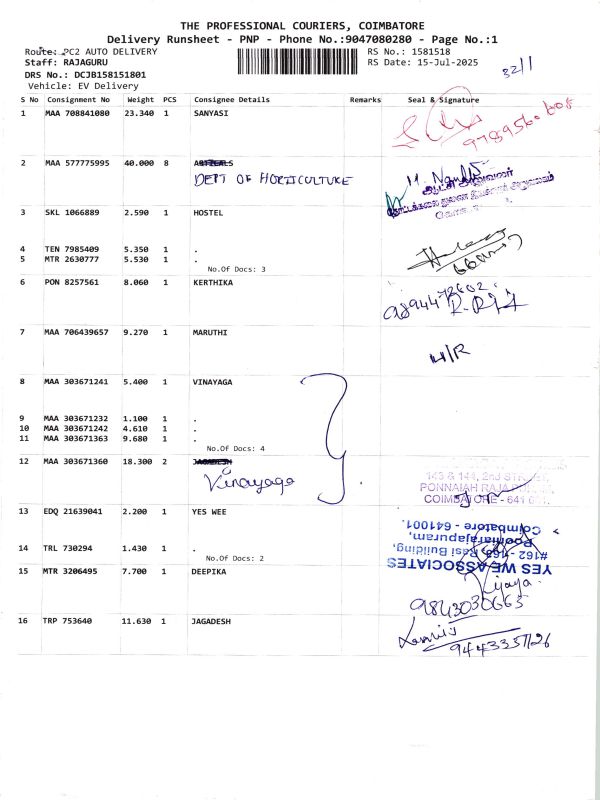 THE PROFESSIONAL COURIERS, COIMBATORE
Delivery Runsheet - PNP - Phone No.:9047080280 - Page No.:1
Route: PC2 AUTO DELIVERY
RS No.: 1581518
Staff: RAJAGURU
RS Date: 15-Jul-2025
DRS No.: DCJB158151801
32/1
Vehicle: EV Delivery
S No Consignment No Weight PCS Consignee Details Remarks Seal & Signature
1 MAA 708841080 23.340 1 SANYASI
2 MAA 577775995 40.000 8
DEPT OF HORTICULTURE
3 SKL 1066889 2.590 1 HOSTEL
4 TEN 7985409 5.350 1 .
5 MTR 2630777 5.530 1 .
No.Of Docs: 3
6 PON 8257561 8.060 1 KERTHIKA
7 MAA 706439657 9.270 1 MARUTHI
H/R
8 MAA 303671241 5.400 1 VINAYAGA
9 MAA 303671232 1.100 1 .
10 MAA 303671242 4.610 1 .
11 MAA 303671363 9.680 1 .
No.Of Docs: 4
12 MAA 303671360 18.300 2 JAGADESH
Vinayaga
143 & 144, 2nd STREET,
PONNAIAH RAJA
COIMBATORE - 641
13 EDQ 21639041 2.200 1 YES WEE
14 TRL 730294 1.430 1 .
No.Of Docs: 2
YES WE ASSOCIATES
#162 - 169, Rasi Building,
Ponnaiarajapuram,
Coimbatore - 641001.
15 MTR 3206495 7.700 1 DEEPIKA
Vijaya.
9843030663
16 TRP 753640 11.630 1 JAGADESH